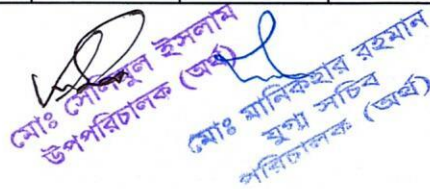 মোঃ সেলিমুল ইসলাম
উপপরিচালক (অর্থ)
মোঃ মানিকহার রহমান
যুগ্ম সচিব
পরিচালক (অর্থ)